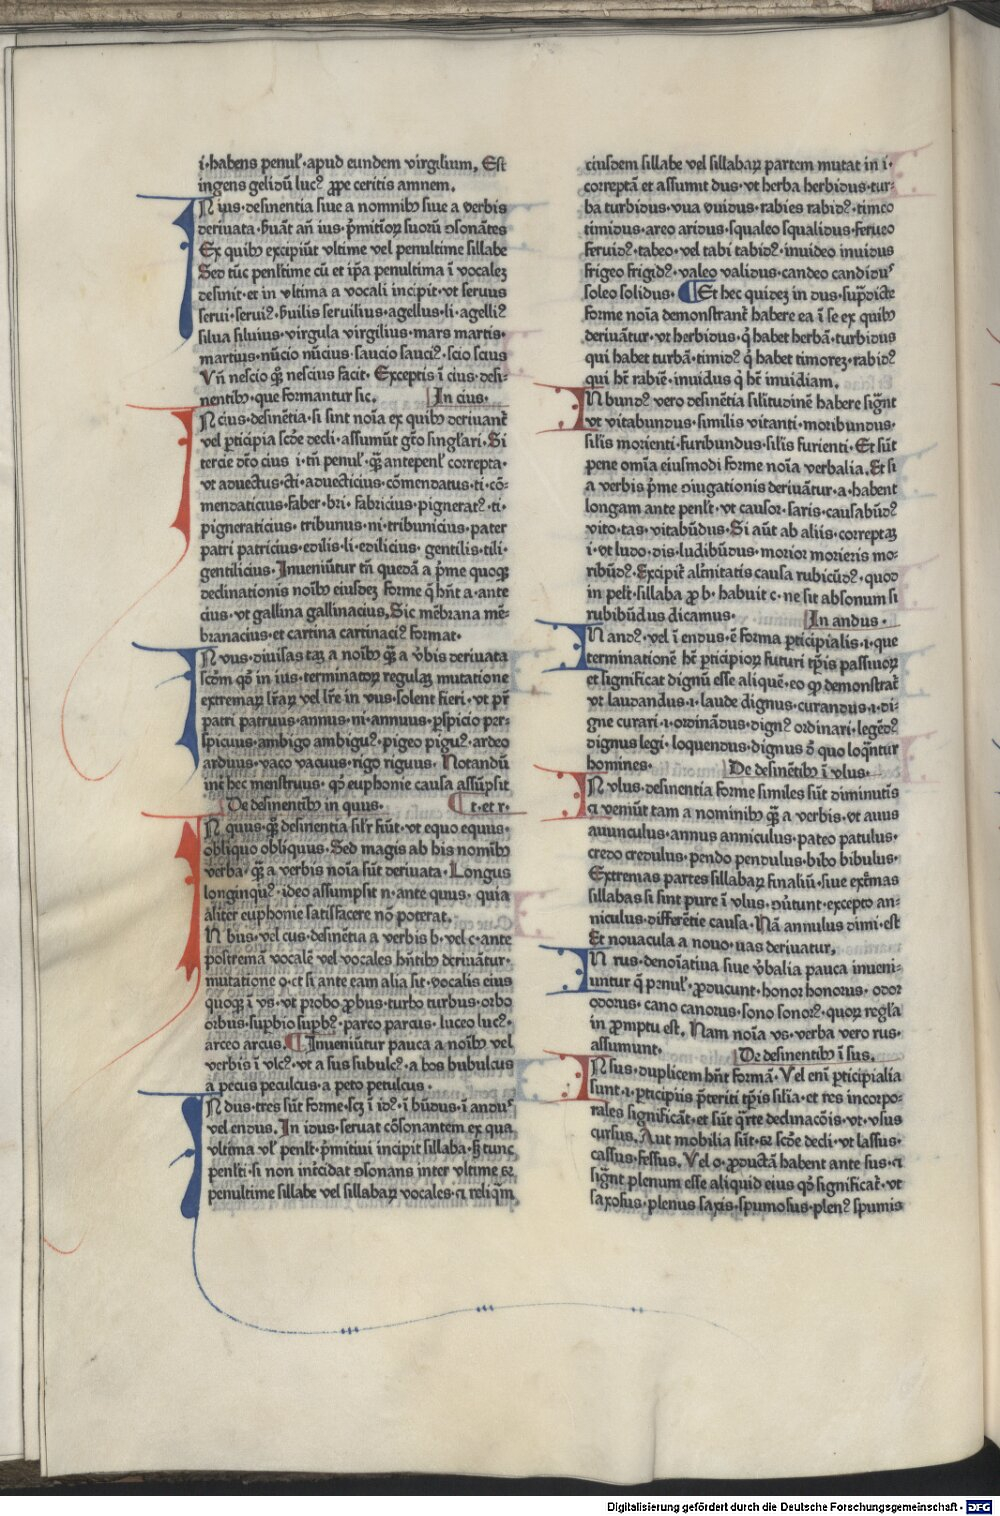 i·habens penul̛·apud eundem virgilium, Est
ingens gelidū lucꝰ ꝓpe ceritis amnem.
IN ius·desinentia siue a nominibꝫ siue a verbis
deriuata·ẜuāt añ ius·p̄mitiuoꝝ suoꝝ ↄsonātes
Ex quibꝫ excipiūt̛ vltime vel penultime sillabe
Sed tūc penl̛time cū et ip̄a penultima ī vocalez
desinit·et in vltima a vocali incipit·vt seruus
serui·seruiꝰ·ẜuilis seruilius·agellus·li·agelliꝰ
silua siluius·virgula virgilius·mars martis·
martius·nūcio nūcius·saucio sauciꝰ·scio scius
Vñ nescio qꝫ̄ nescius facit· Exceptis ī cius·desi-
nentibꝫ·que formantur sic. In cius·
IN cius·desinētia·si sint noīa ex quibꝫ deriuant̛
vel ꝑticipia scd̄e decli·assumūt gt̄o singl̛ari·Si
tercie dt̄o cius i·tñ penul̛·qꝫ̄ antepenl̛ correpta·
vt aduectus·cti·aduecticius·cōmendatus·ti·cō-
mendaticius·faber·bri·fabricius·pigneratꝰ·ti·
pigneraticius·tribunus·ni·tribunicius·pater
patri patricius·edilis·li·edilicius· gentilis·tili·
gentilicius· Inueniūtur tñ quedā a p̄me quoqꝫ
declinationis noībꝫ eiusdez forme q̄ hn̄t a·ante
cius·vt gallina gallinacius, Sic mēbrana mē-
branacius·et cartina cartinaciꝰ format·
IN vus·diuisas taꝫ a noībꝫ qꝫ̄ a v̄bis deriuata
scd̄m qd̄ in ius·terminatoꝝ regulaꝫ mutatione
extremaꝝ lr̄aꝝ vel lr̄e in vus·solent fieri·vt pr̄
patri patruus·annus·ni·annuus·ꝑspicio per-
spicuus·ambigo ambiguꝰ·pigeo piguꝰ·ardeo
arduus·vaco vacuus·rigo riguus· Notandū
int̛ hec menstruus·qd̄ euphonie causa assūpsit
De desinentibꝫ in quus· ¶ t·et r·
IN quus·qꝫ̄ desinentia sil̛r fiūt·vt equo equus·
obliquo obliquus·Sed magis ab his nomībꝫ
verba·qꝫ̄ a verbis noīa sūt deriuata·Longus
longinquꝰ·ideo assumpsit n·ante quus· quia
aliter euphonie satisfacere nō poterat,
IN bus·vel cus·desinētia a verbis b·vel c·ante
postremā vocalē vel vocales hn̄tibꝫ deriuātur·
mutatione o·et si ante eam alia sit·vocalis eius
quoqꝫ ī vs·vt probo ꝓbus·turbo turbus·orbo
orbus·suꝑbio suꝑbꝰ·parco parcus·luceo lucꝰ·
arceo arcus. ¶ Inueniūtur pauca a noībꝫ vel
verbis ī vlcꝰ·vt a sus subulcꝰ·a bos bubulcus
a pecus peculcus·a peto petulcus·
IN dus·tres sūt forme·scꝫ ī idꝰ·ī būdus·ī anduˢ
vel endus. In idus·seruat cōsonantem ex qua
vltima vl̛ penl̛t·p̄mitiui incipit sillaba·sꝫ tunc
penl̛ti·si non int̛cidat ↄsonans inter vltime ⁊
penultime sillabe vel sillabaꝝ vocales·⁊ reliqm̄
eiusdem sillabe vel sillabaꝝ partem mutat in i·
correptā et assumit dus·vt herba herbidus·tur-
ba turbidus·vua vuidus·rabies rabidꝰ·timeo
timidus·areo aridus·squaleo squalidus·ferueo
feruidꝰ·tabeo·vel tabi tabidꝰ·inuideo inuidus
frigeo frigidꝰ·valeo validus·candeo candiduˢ
soleo solidus· ¶ Et hec quidez in dus·sup̄dicte
forme noīa demonstrant̛ habere ea ī se ex quibꝫ
deriuātur·vt herbidus·q̇ habet herbā·turbidus
qui habet turbā·timidꝰ q̇ habet timorez·rabidꝰ
qui hꝫ rabiē·inuidus q̇ hꝫ inuidiam,
IN bundꝰ vero desinētia silitudinē habere signt̄
vt vitabundus·similis vitanti·moribundus·
silis morienti·furibundus·silis furienti·Et sūt
pene omīa eiusmodi forme noīa verbalia. Et si
a verbis p̄me ↄiugationis deriuātur·a·habent
longam ante penl̛t·vt causor·saris·causabūdꝰ
vito·tas·vitabūdus·Si aūt ab aliis·correptaꝫ
i·vt ludo·dis·ludibūdus·morior morieris mo-
ribūdꝰ·Excipit̛ alt̛nitatis causa rubicūdꝰ·quod
in pest·sillaba ꝓ b·habuit c·ne sit absonum si
rubibūdus dicamus· In andus·
IN andꝰ·vel ī endus·ē forma ꝑticipialis·i·que
terminationē hꝫ ꝑticipioꝝ futuri tp̄is passiuoꝝ
et significat dignū esse aliquē·eo qd̄ demonstrat̛
vt laudandus·i·laude dignus·curandus·i·di-
gne curari·i·ordinādus·dignꝰ ordinari·legēdꝰ
dignus legi·loquendus·dignus d̄ quo loqn̄tur
homines· De desinētibꝫ ī vlus·
IN vlus·desinentia forme similes sūt diminutīs
⁊ veniūt tam a nominibꝫ qꝫ̄ a verbis·vt auus
auunculus·annus anniculus·pateo patulus·
credo credulus·pendo pendulus·bibo bibulus·
Extremas partes sillabaꝝ finaliū·siue ext̛mas
sillabas si sint pure ī vlus·ↄūtunt·excepto an-
niculus·differētie causa·Nā annulus dimi·est
Et nouacula a nouo·uas deriuatur,
IN rus·denoīatiua siue v̄balia pauca inueni-
untur q̄ penul̛·ꝓducunt·honor honorus· odor
odorus· cano canorus·sono sonorꝰ·quoꝝ regl̛a
in ꝓmptu est. Nam noīa vs·verba vero rus·
assumunt· De desinentibꝫ ī sus,
IN sus·duplicem hn̄t formā·Vel enī ꝑticipialia
sunt·i·ꝑticipiis p̄teriti tp̄is silia·et res incorpo-
rales significāt·et sūt q̄rte declinacōis·vt·vsus
cursus. Aut mobilia sūt·⁊ scd̄e decli·vt lassus·
cassus·fessus, Vel o·ꝓductā habent ante sus·⁊
signt̄ plenum esse aliquid eius qd̄ significat̛·vt
saxosus·plenus saxis·spumosus·plenꝰ spumis
Digitalisierung gefördert durch die Deutsche Forschungsgemeinschaft - DFG